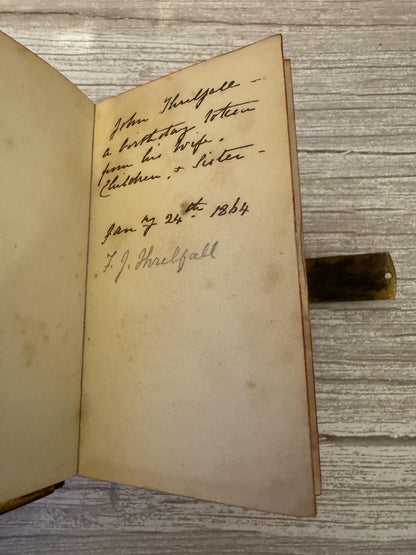 John Threlfall —
a birthday Token
from his Wife,
Children, & Sister —
Jan y 24th 1864
F. J. Threlfall